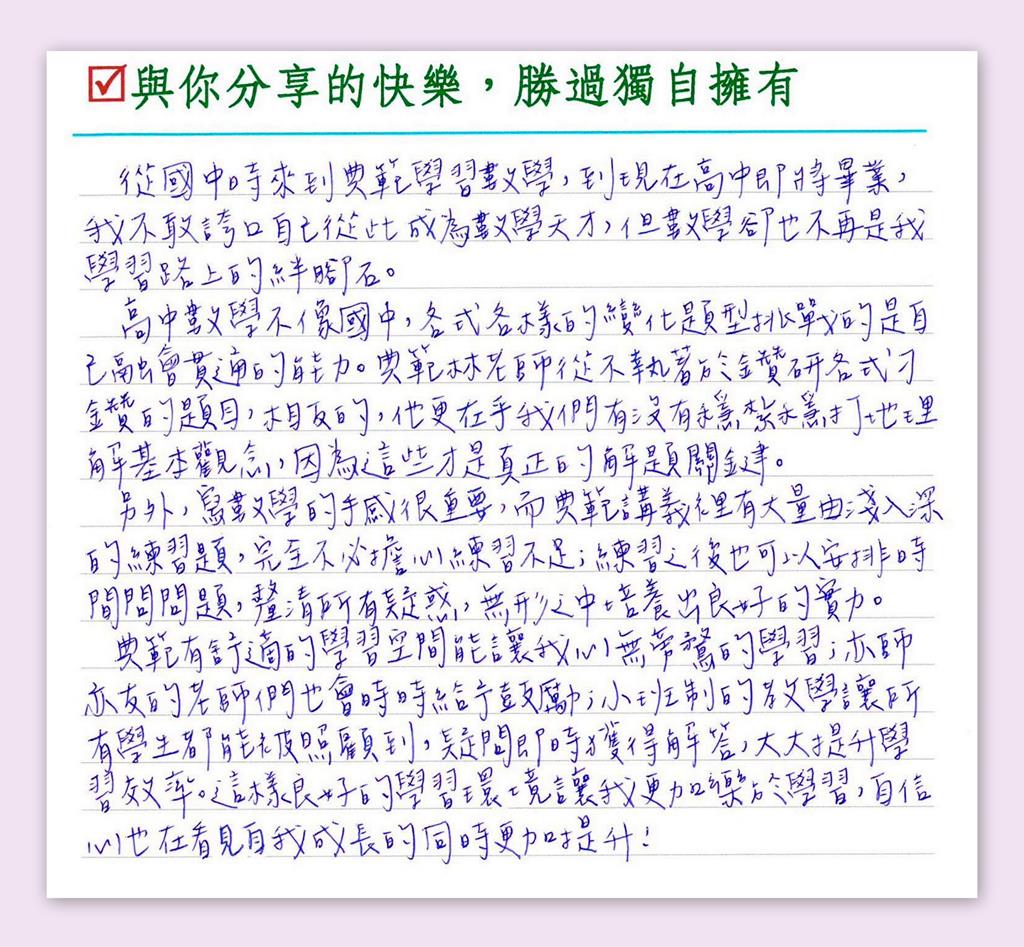 與你分享的快樂，勝過獨自擁有
從國中時來到典範學習數學，到現在高中即將畢業，
我不敢誇口自己從此成為數學天才，但數學卻也不再是我
學習路上的絆腳石。
高中數學不像國中，各式各樣的變化題型挑戰的是自
己融會貫通的能力。典範林老師從不執著於鑽研各式刁
鑽的題目，相反的，他更在乎我們有沒有穩紮穩打地理
解基本觀念，因為這些才是真正的解題關鍵。
另外，寫數學的手感很重要，而典範講義裡有大量由淺入深
的練習題，完全不必擔心練習不足；練習之後也可以安排時
間問問題，釐清所有疑惑，無形之中培養出良好的實力。
典範有舒適的學習空間能讓我心無旁騖的學習；亦師
亦友的老師們也會時時給予鼓勵；小班制的教學讓所
有學生都能被照顧到，疑問即時獲得解答，大大提升學
習效率。這樣良好的學習環境讓我更加樂於學習，自信
心也在看見自我成長的同時更加提升！